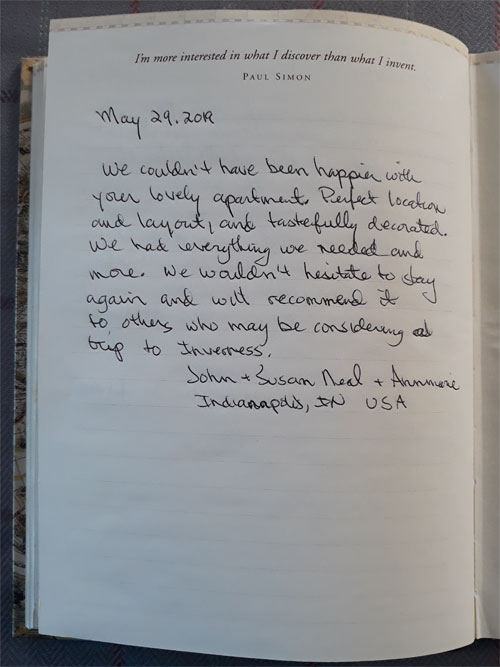 I'm more interested in what I discover than what I invent.
PAUL SIMON
May 29. 2019
We couldn't have been happier with
your lovely apartment. Perfect location
and layout, and tastefully decorated.
We had everything we needed and
more. We wouldn't hesitate to stay
again and will recommend it
to others who may be considering a
trip to Inverness.
John + Susan Neal + Annmarie
Indianapolis, IN USA